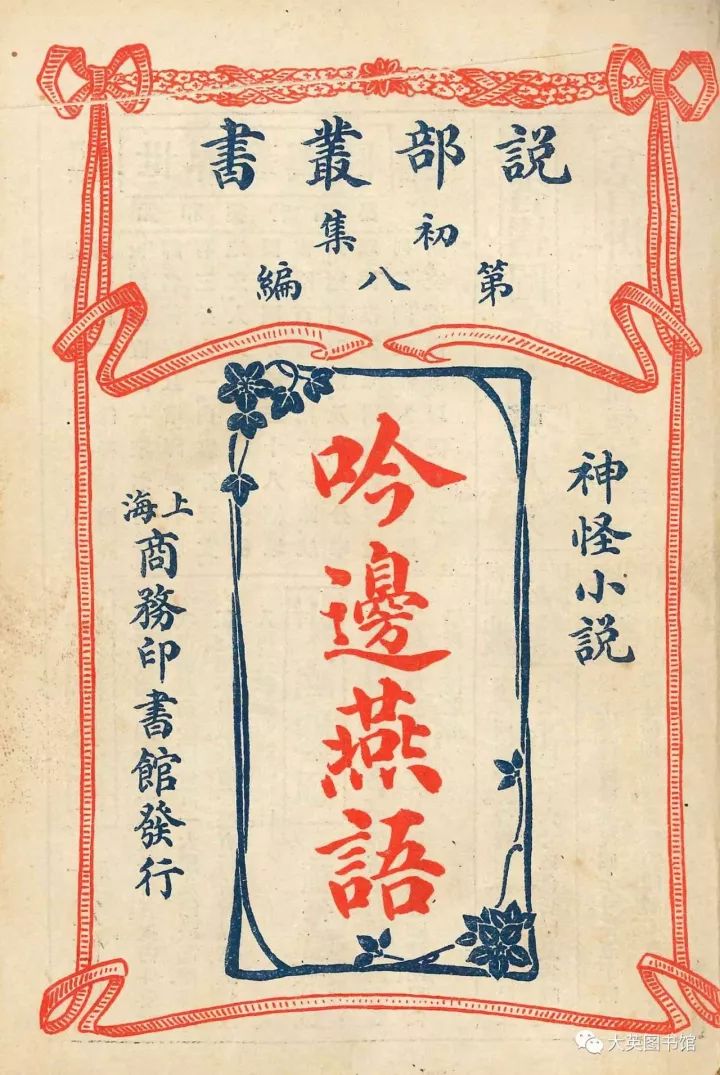 説部叢書
初集
第八編
神怪小説
吟邊燕語
上海商務印書館發行
大英图书馆